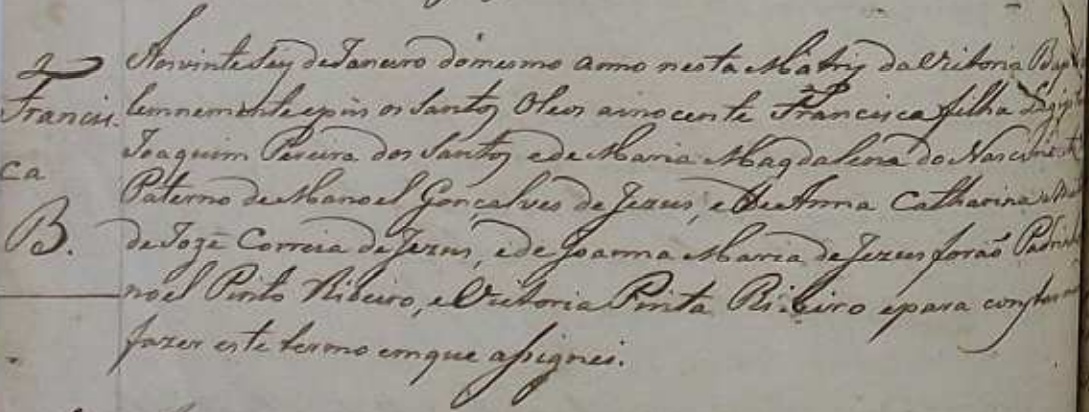 2
Francis-
ca
B.
Aos vinte Seis de Janeiro do mesmo anno nesta Matriz da Victoria Bap
lemnemente e puis os Santos Oleos a inocente Francisca filha Legit
Joaquim Pereira dos Santos e de Maria Magdalena do Nascimt
Paterno de Manoel Gonçalves de Jezus, e de Anna Catharina e Ma
de Jozé Correia de Jezus, e de Joanna Maria de Jezus forão Padrinh
noel Pinto Ribeiro, e Victoria Pinta Ribeiro e para constar m
fazer este termo em que assignei.